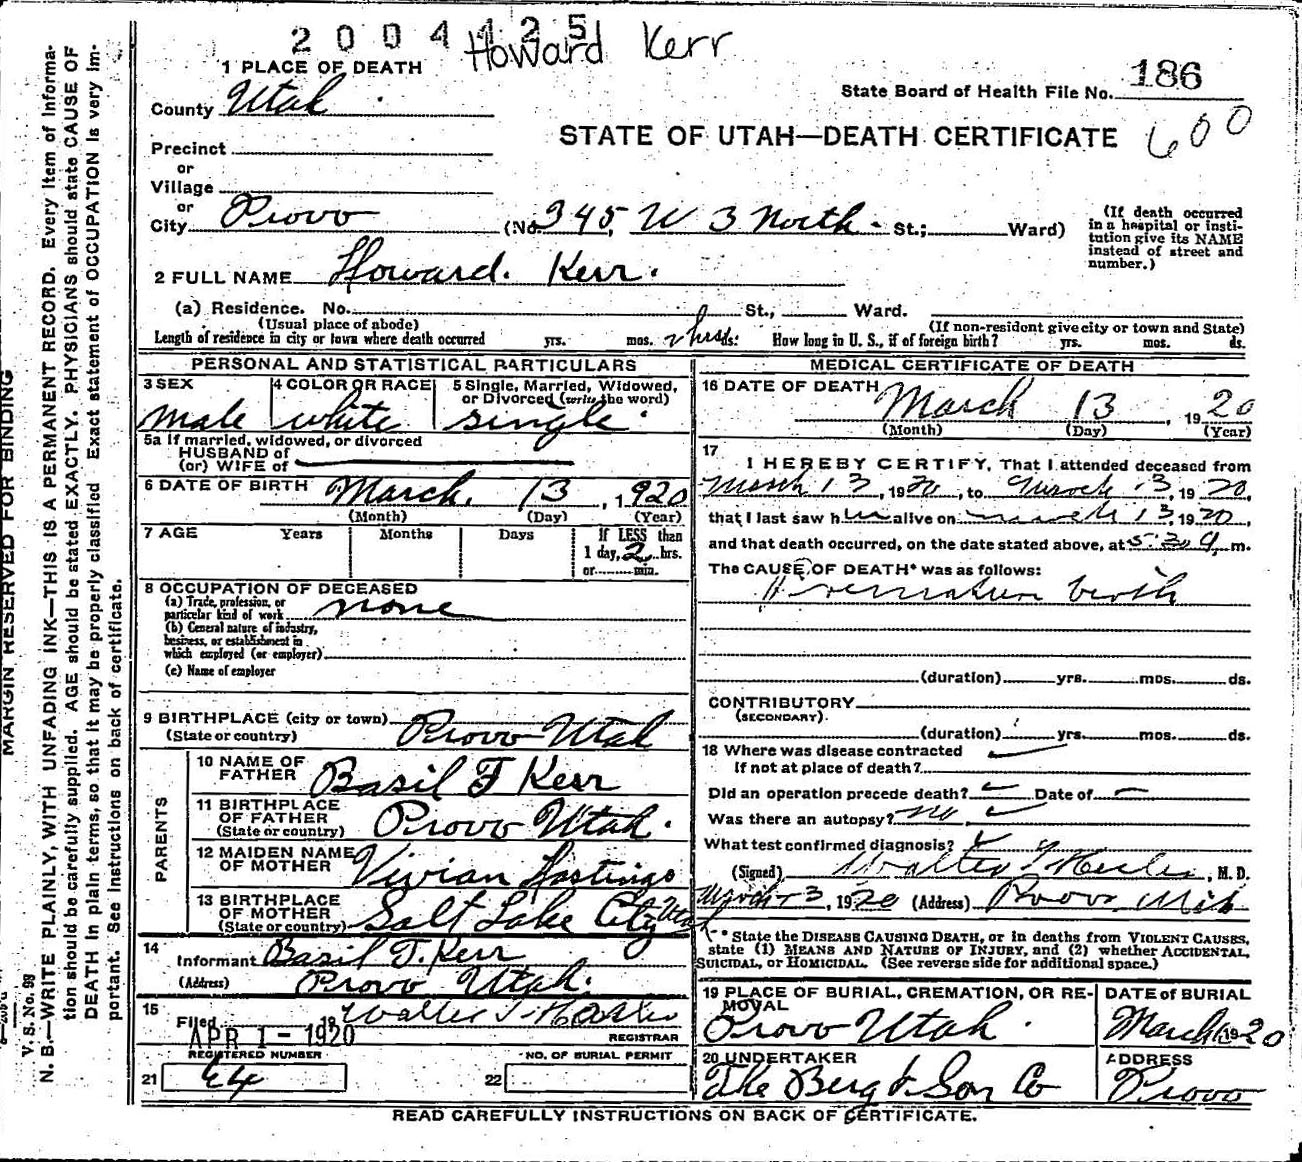 2004425
Howard Kerr
1 PLACE OF DEATH
County Utah
State Board of Health File No. 186
STATE OF UTAH—DEATH CERTIFICATE
600
Precinct
or
Village
or
City Provo (No. 345, W 3 North St.; Ward)
(If death occurred in a hospital or institution give its NAME instead of street and number.)
2 FULL NAME Howard. Kerr.
(a) Residence. No. St., Ward.
(Usual place of abode) (If non-resident give city or town and State)
Length of residence in city or town where death occurred yrs. mos. 2 hrs ds. How long in U. S., if of foreign birth? yrs. mos. ds.
PERSONAL AND STATISTICAL PARTICULARS
3 SEX male
4 COLOR OR RACE white
5 Single, Married, Widowed, or Divorced (write the word) single
5a If married, widowed, or divorced
HUSBAND of
(or) WIFE of
6 DATE OF BIRTH March, 13, 1920
(Month) (Day) (Year)
7 AGE Years Months Days If LESS than
1 day, 2 hrs.
or min.
8 OCCUPATION OF DECEASED
(a) Trade, profession, or
particular kind of work none
(b) General nature of industry,
business, or establishment in
which employed (or employer)
(c) Name of employer
9 BIRTHPLACE (city or town) Provo Utah
(State or country)
PARENTS
10 NAME OF FATHER Basil F Kerr
11 BIRTHPLACE OF FATHER (State or country) Provo Utah.
12 MAIDEN NAME OF MOTHER Vivian Hastings
13 BIRTHPLACE OF MOTHER (State or country) Salt Lake City Utah
14
Informant Basil T. Kerr
(Address) Provo Utah.
15
Filed APR 1 - 1920 19 Walter T Hasler
REGISTRAR
REGISTERED NUMBER
21 64
NO. OF BURIAL PERMIT
22
MEDICAL CERTIFICATE OF DEATH
16 DATE OF DEATH March 13, 1920
(Month) (Day) (Year)
17
I HEREBY CERTIFY, That I attended deceased from
March 13, 1920, to March 13, 1920,
that I last saw him alive on march 13, 1920,
and that death occurred, on the date stated above, at m.
The CAUSE OF DEATH* was as follows:
Premature birth
(duration) yrs. mos. ds.
CONTRIBUTORY
(SECONDARY)
(duration) yrs. mos. ds.
18 Where was disease contracted
If not at place of death?
Did an operation precede death? Date of
Was there an autopsy? no
What test confirmed diagnosis?
(Signed) Walter T Hasler, M. D.
, 1920 (Address) Provo Utah
* State the DISEASE CAUSING DEATH, or in deaths from VIOLENT CAUSES,
state (1) MEANS AND NATURE OF INJURY, and (2) whether ACCIDENTAL,
SUICIDAL, or HOMICIDAL. (See reverse side for additional space.)
19 PLACE OF BURIAL, CREMATION, OR REMOVAL
Provo Utah.
DATE of BURIAL
March 1920
20 UNDERTAKER
The Berg & Son Co
ADDRESS
Provo
READ CAREFULLY INSTRUCTIONS ON BACK OF CERTIFICATE.
MARGIN RESERVED FOR BINDING
V. S. No. 99
N. B.—WRITE PLAINLY, WITH UNFADING INK—THIS IS A PERMANENT RECORD. Every Item of Informa-
tion should be carefully supplied. AGE should be stated EXACTLY. PHYSICIANS should state CAUSE OF
DEATH in plain terms, so that it may be properly classified. Exact statement of OCCUPATION is very im-
portant. See Instructions on back of certificate.